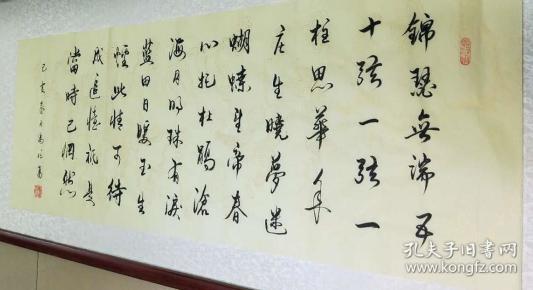 錦瑟無端五
十弦一弦一
柱思華年
庄生曉夢迷
蝴蝶望帝春
心托杜鵑滄
海月明珠有淚
藍田日暖玉生
煙此情可待
成追憶祇是
當時已惘然
己亥春月
孔夫子旧书网
www.kongfz.com